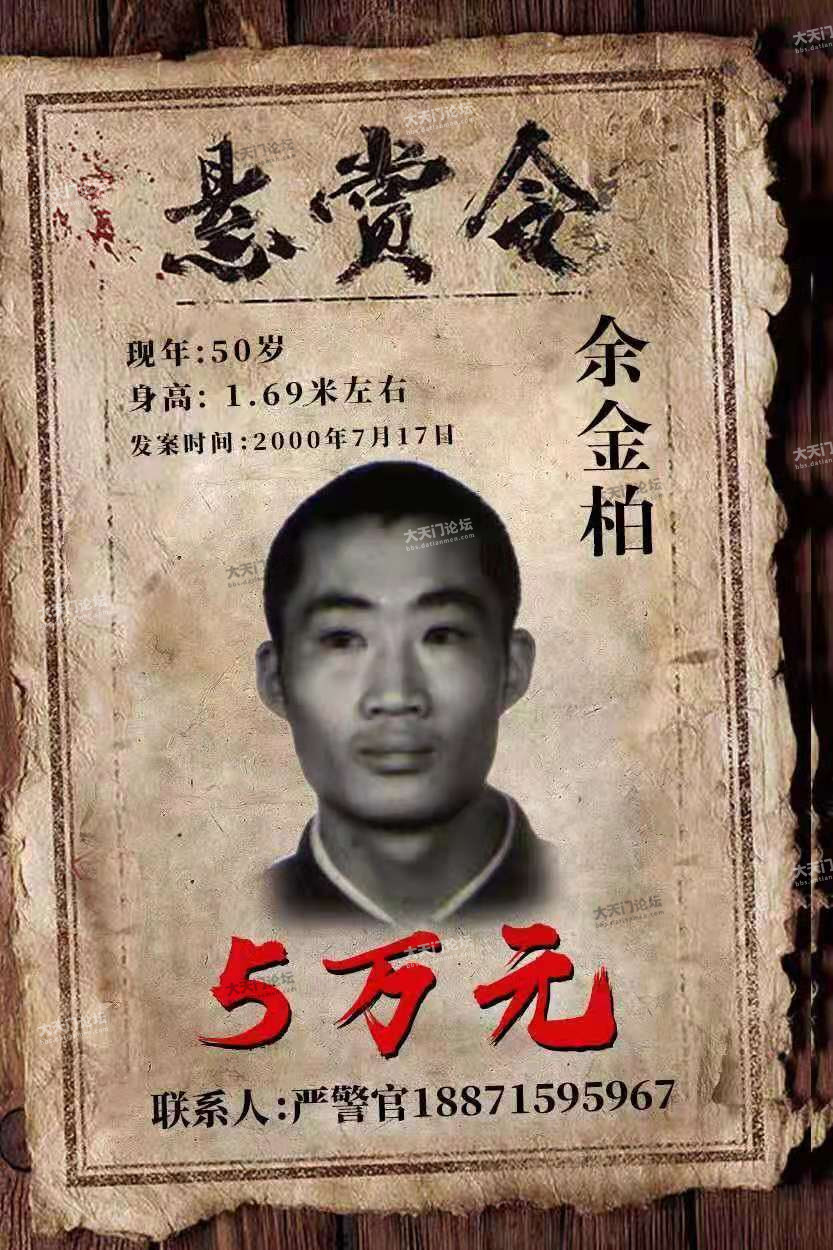 悬赏令
现年:50岁
身高: 1.69米左右
发案时间:2000年7月17日
余金柏
5万元
联系人:严警官18871595967
大天门论坛
bbs.datianmen.com